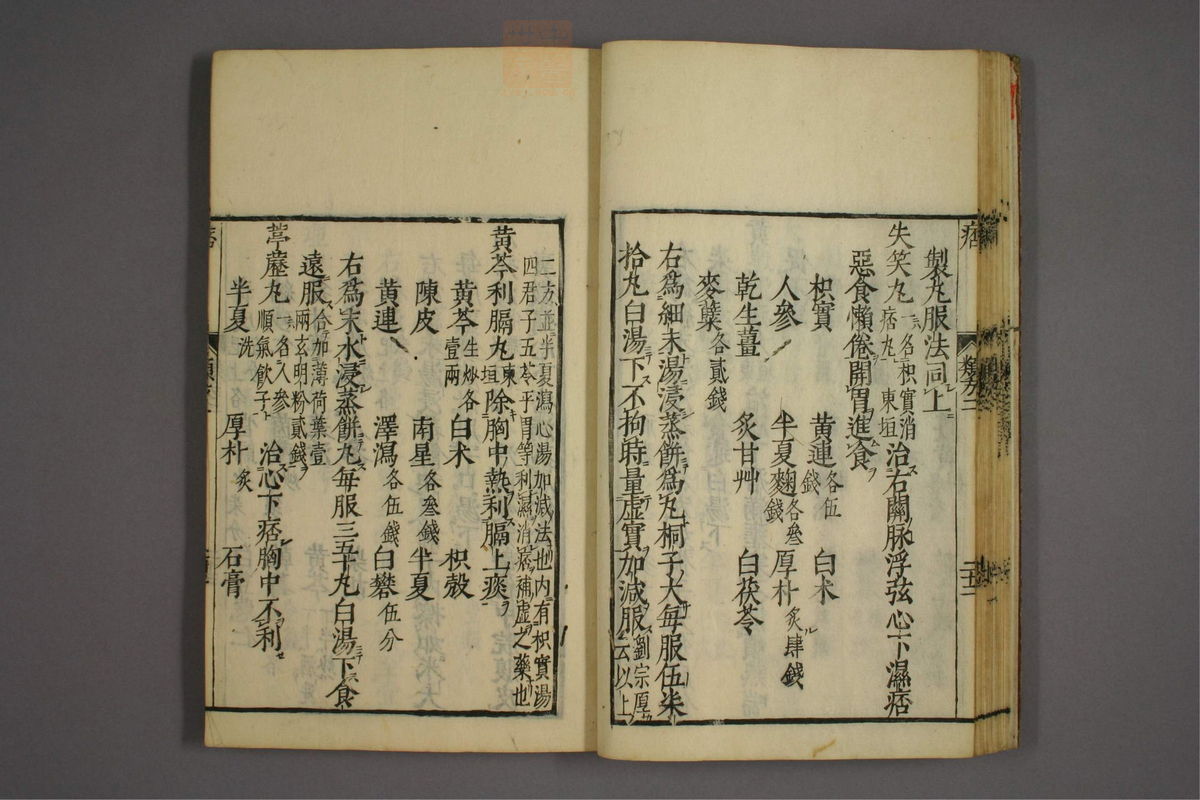 痞
製丸服法同上
失笑丸一名枳實消痞丸東垣治右關脉浮弦心下濕痞
惡食懶倦開胃進食
枳實 黄連各伍錢 白朮
人參 半夏麴各叄錢 厚朴炙肆錢
乾生薑 炙甘艸 白茯苓
麥蘖各貳錢
右爲細末湯浸蒸餅爲丸桐子大每服伍柒
拾丸白湯下不拘時量虚實加減服劉宗厚云以上
二方並半夏瀉心湯加減法也内有枳實湯四君子五苓平胃等利濕消痰補虚之藥也
黄芩利膈丸東垣除胸中熱利膈上痰
黄芩生炒各壹兩 白朮 枳殻
陳皮 南星各叄錢 半夏
黄連 澤瀉各伍錢 白礬伍分
右爲末水浸蒸餅丸每服三五十丸白湯下食
遠服一合加薄荷葉壹兩玄明粉貳錢
葶藶丸一名人參順氣飲子治心下痞胸中不利
半夏洗 厚朴炙 石膏